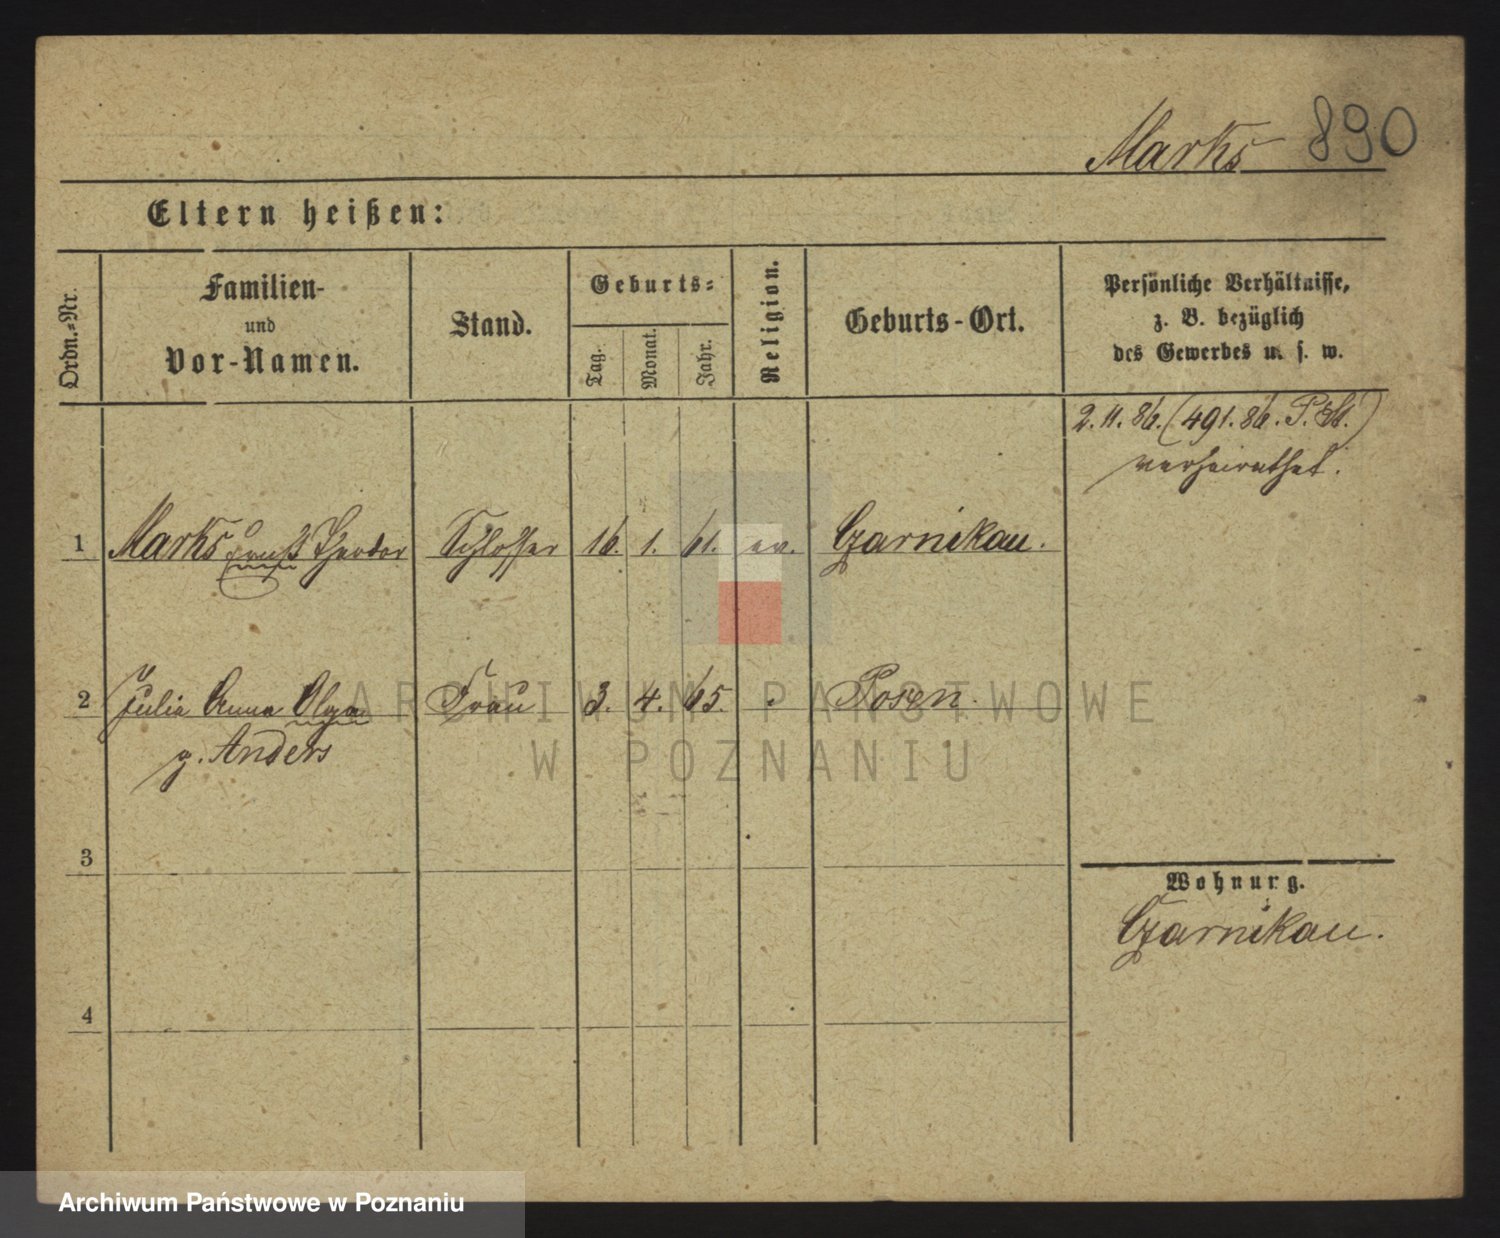 Marks 890
Eltern heißen:
Ordn.=Nr.
Familien-
und
Vor-Namen.
Stand.
Geburts=
Tag.
Monat.
Jahr.
Religion.
Geburts-Ort.
Persönliche Verhältnisse,
z. B. bezüglich
des Gewerbes u. s. w.
2.11.86. (491.86. P. St.)
verheirathet.
1 Marks Ernst Theodor Schlosser 16. 1. 61. ev. Czarnikau.
2 Julie Anna Olga Frau 3. 4. 65. Posen.
g. Anders
3
Wohnung.
Czarnikau.
4
ARCHIWUM PAŃSTWOWE
W POZNANIU
Archiwum Państwowe w Poznaniu